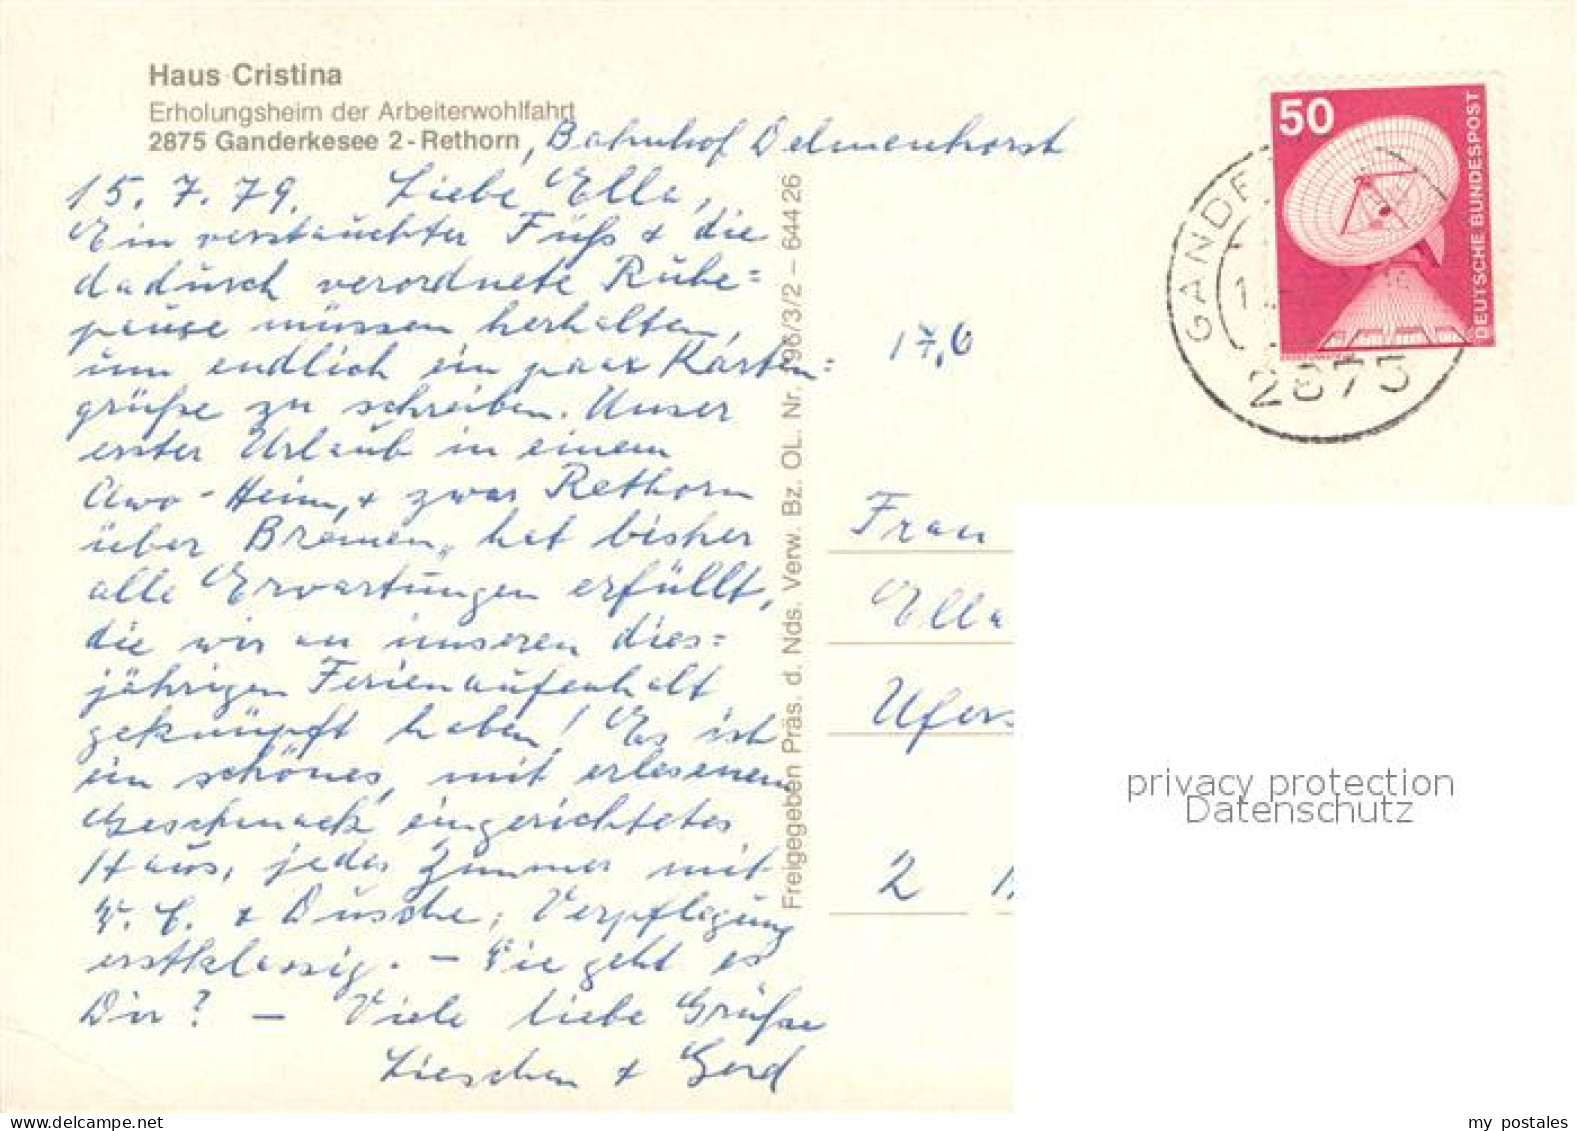 Haus Cristina
Erholungsheim der Arbeiterwohlfahrt
2875 Ganderkesee 2-Rethorn, Bahnhof Delmenhorst
15. 7. 79. Liebe Ella,
Ein verstauchter Fuß & die
dadurch verordnete Ruhe=
pause müssen herhalten,
um endlich ein paar Karten=
grüße zu schreiben. Unser
erster Urlaub in einem
Awo-Heim, & zwar Rethorn
über Bremen, hat bisher
alle Erwartungen erfüllt,
die wir an unseren dies=
jährigen Ferienaufenhalt
geknüpft haben! Es ist
ein schönes, mit erlesenem
Geschmack eingerichtetes
Haus, jedes Zimmer mit
W.C. & Dusche, Verpflegung
erstklassig. – Wie geht es
Dir? – Viele liebe Grüße
Lieschen & Gerd
Freigegeben Präs. d. Nds. Verw. Bz. OL. Nr. 196/3/2 – 644 26
50
DEUTSCHE BUNDESPOST
GANDE
2875
Frau
Ella
Ufers
2
privacy protection
Datenschutz
my postales